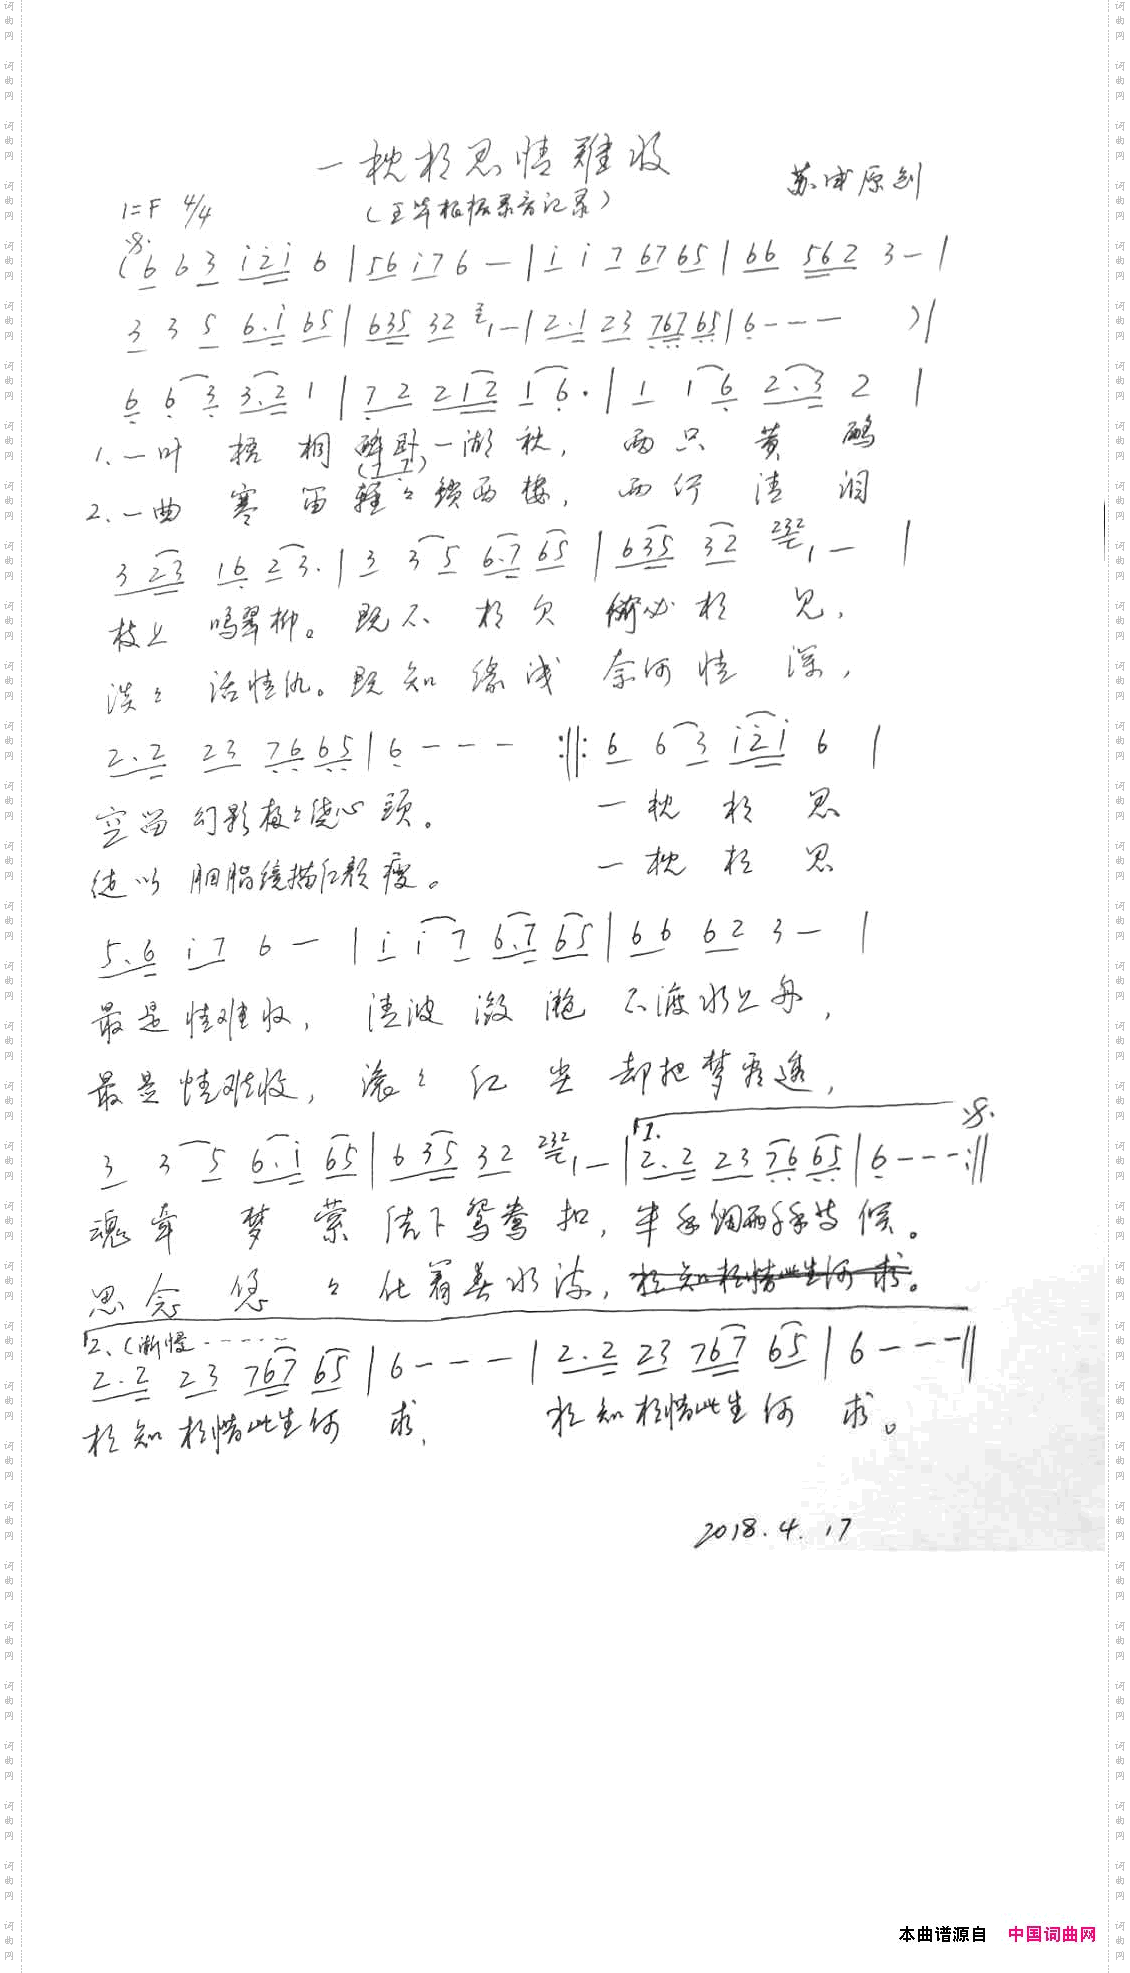 一枕相思情難收
苏成原创
1=F 4/4
(王毕根据录音记录)
(6 6 3 i 2 i 6 | 56 i7 6 — | i i 7 67 65 | 66 562 3 — |
3 3 5 6.i 65 | 635 32 2 1 — | 2.1 23 767 65 | 6 - - - )|
6 6 3 3.2 1 | 7 2 212 1 6 . | 1 1 6 2.3 2 |
1. 一叶 梧 桐 醉卧一湖 秋, 两只 黄 鹂
(7 7)
2. 一曲 寒 笛 轻々锁西楼, 两行 清 泪
3 23 16 23. | 3 3 5 6.7 65 | 635 32 232 1 — |
枝上 鸣翠柳。既不 相欠 何必相 见,
淡々 活情仇。既知 缘浅 奈何情 深,
2.2 23 76 65 | 6 - - - :||: 6 6 3 i 2 i 6 |
空留 幻影 绕心 頭。 一枕 相 思
徒以 胭脂 描红颜 瘦。 一枕 相 思
5.6 i7 6 — | i i 7 6.7 65 | 66 62 3 — |
最是 情难收, 清波 潋 滟 不渡水上舟,
最是 情难收, 滚々 红 尘 却把梦 透,
3 3 5 6.i 65 | 6 35 32 232 1 — | 1. 2.2 23 76 65 | 6 - - - :||
魂牵 梦 萦 结下鸳鸯 扣, 半 烟雨 等 候。
思念 悠 々 化着春水流, 相知相惜此生何 求。
2. (渐慢 - - - - -
2.2 23 767 65 | 6 - - - | 2.2 23 767 65 | 6 - - - ||
相知 相惜此生何 求, 相知相惜此生何 求。
2018.4.17
本曲谱源自 中国词曲网